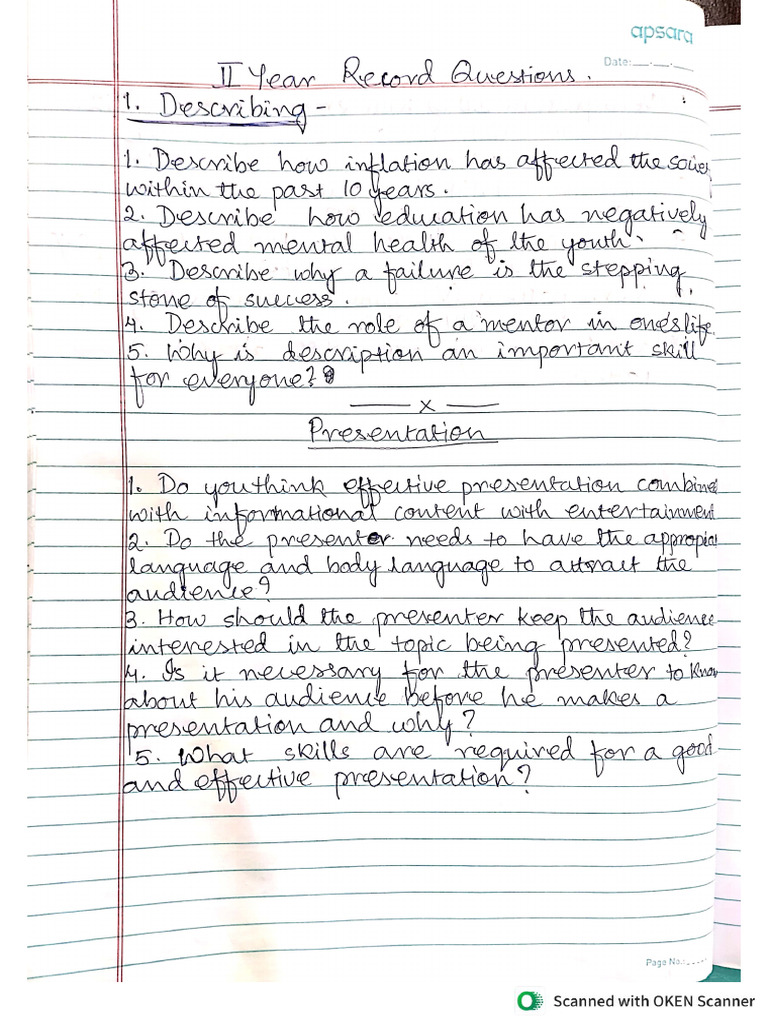 apsara
Date:__.__.__
II Year Record Questions.
1. Describing -
1. Describe how inflation has affected the
within the past 10 years.
2. Describe how education has negatively
affected mental health of the youth.
3. Describe why a failure is the stepping
stone of success.
4. Describe the role of a mentor in one's life.
5. Why is description an important skill
for everyone?
—— x ——
Presentation
1. Do you think effective presentation combine
with informational content with entertainment
2. Do the presenter needs to have the
language and body language to attract the
audience?
3. How should the presenter keep the audience
interested in the topic being presented?
4. Is it necessary for the presenter to know
about his audience before he makes a
presentation and why?
5. What skills are required for a good
and effective presentation?
Page No.:
Scanned with OKEN Scanner